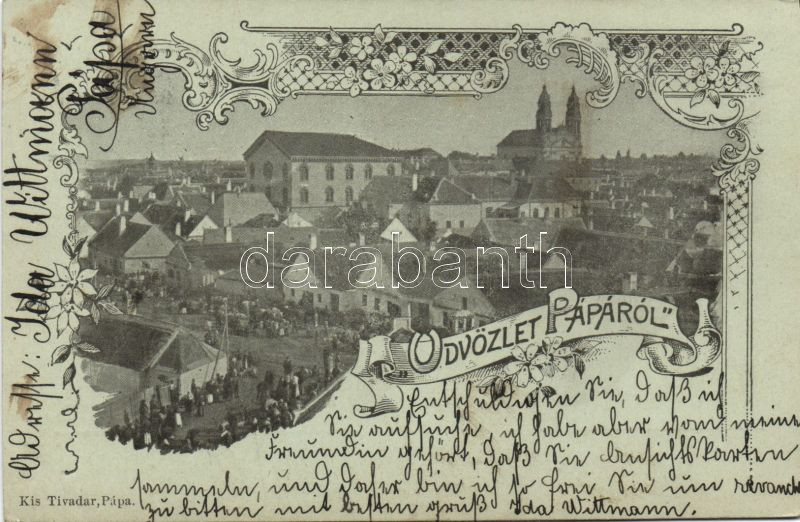 Pápa
Ungarn
Adresse: Ida Wittmann
„ÜDVÖZLET PÁPÁRÓL"
darabanth
Entschuldigen Sie, daß ich
Sie aufsuche, ich habe aber vom meine
Freundin gehört, daß Sie Ansichtskarten
sammeln, und daher bin ich so frei Sie um revanche
zu bitten mit besten gruß Ida Wittmann.
Kis Tivadar, Pápa.